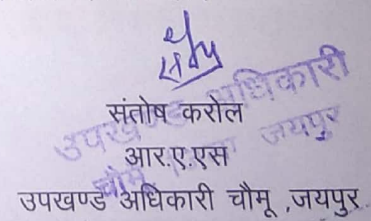 संतोष करोल
आर.ए.एस
उपखण्ड अधिकारी चौमू ,जयपुर
उपखण्ड अधिकारी
जयपुर